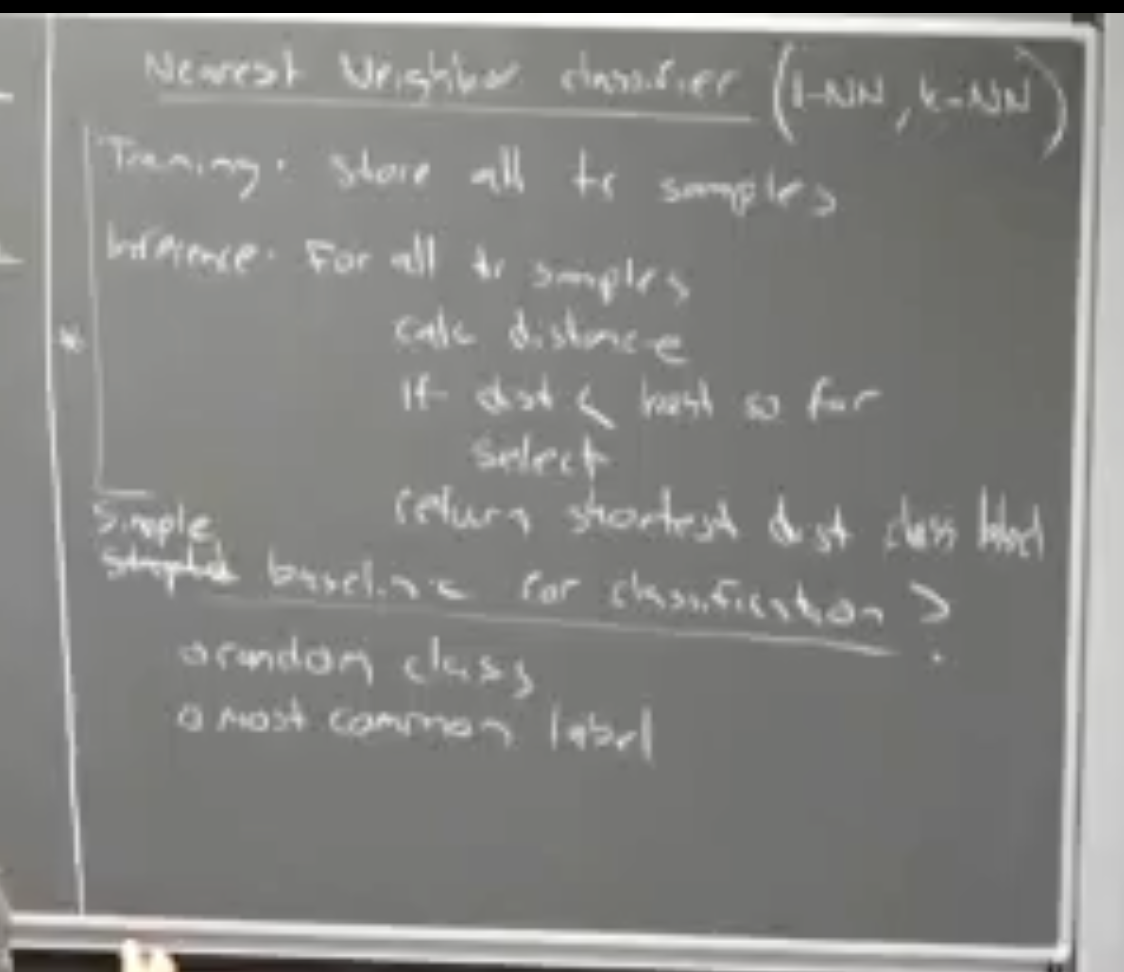 Nearest Neighbor classifier (1-NN, k-NN)
Training: store all tr samples
Inference: For all tr samples
*
calc distance
If dist < best so far
select
return shortest dist class label
Simple
baseline for classification?
o random class
o most common label